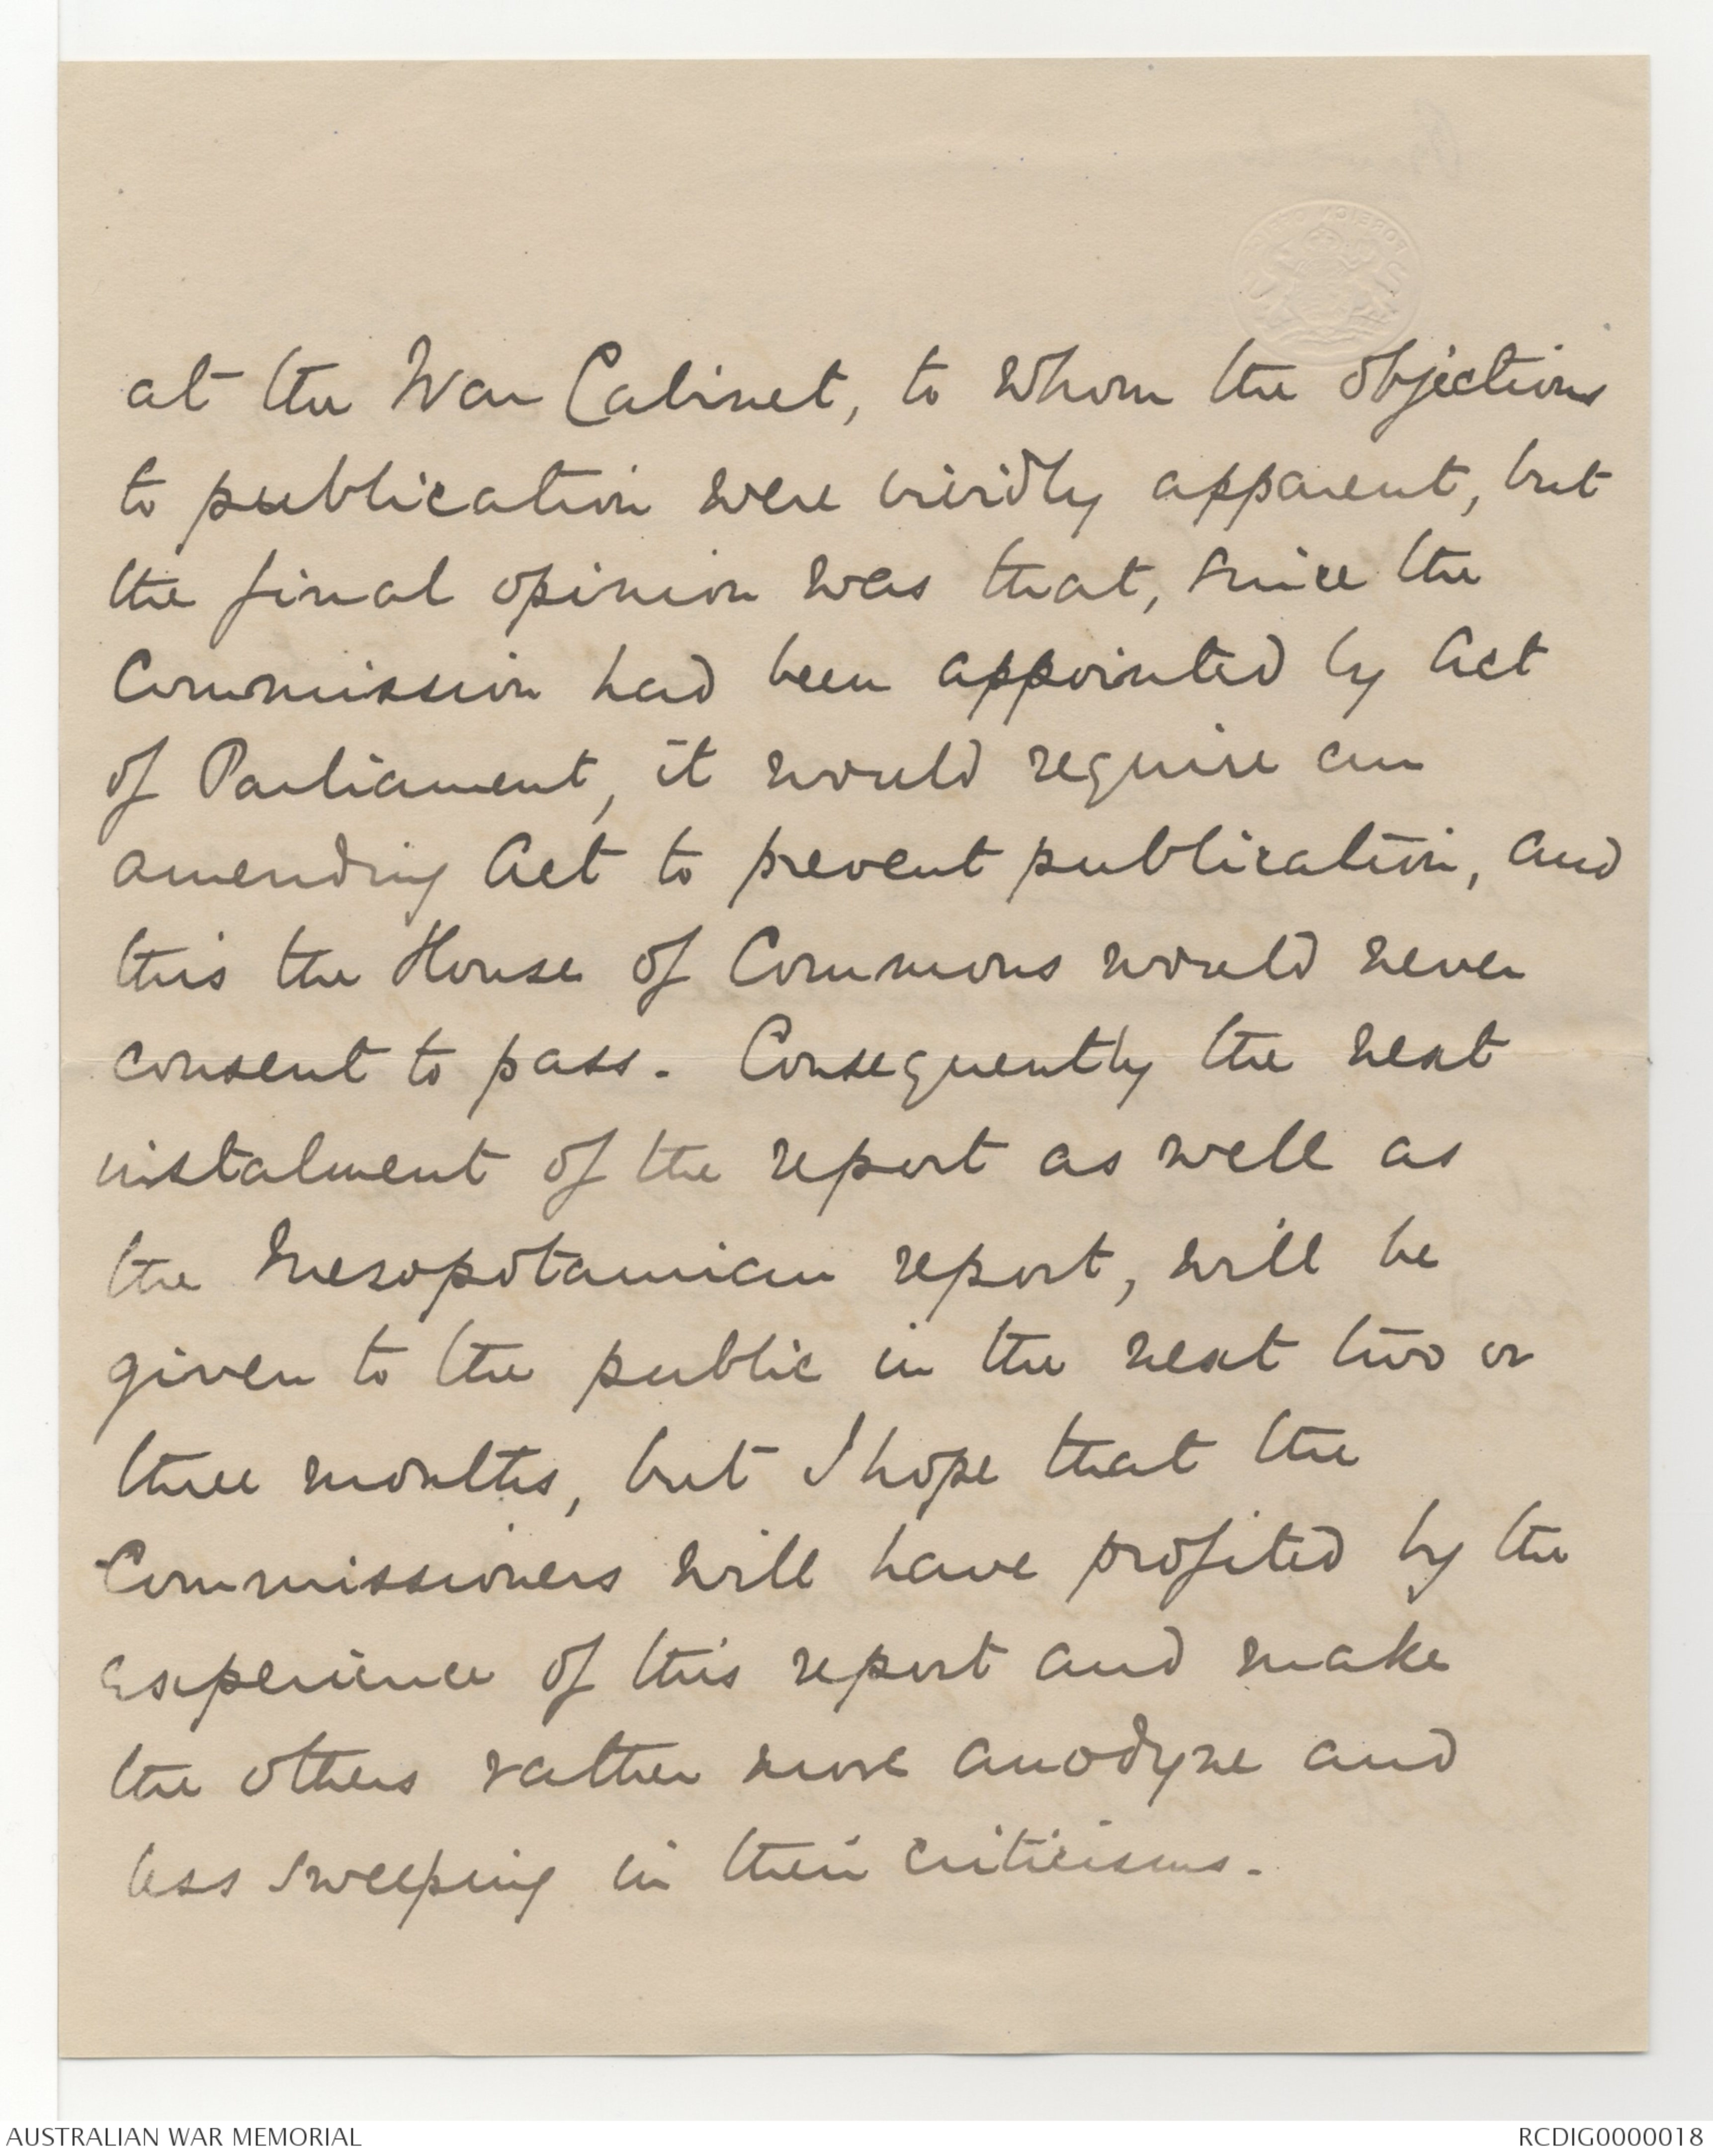 at the War Cabinet, to whom the objections
to publication were vividly apparent, but
the final opinion was that, since the
Commission had been appointed by Act
of Parliament, it would require an
amending Act to prevent publication, and
this the House of Commons would never
consent to pass. Consequently the next
instalment of the report as well as
the Mesopotamian report, will be
given to the public in the next two or
three months, but I hope that the
Commissioners will have profited by the
experience of this report and make
the others rather more anodyne and
less sweeping in their criticisms.
AUSTRALIAN WAR MEMORIAL
RCDIG0000018